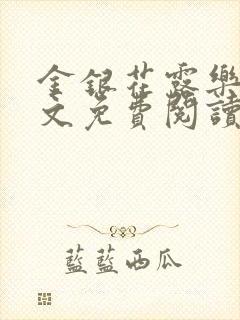 金銀花露樂
文免費閱讀
藍藍西瓜